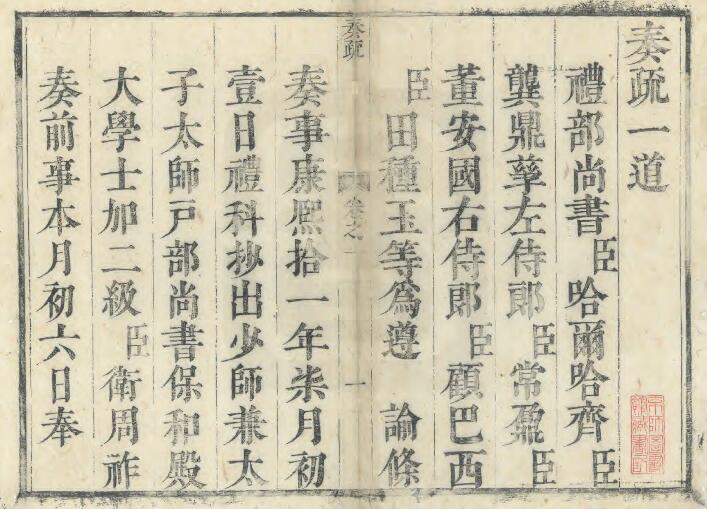 奏疏一道
禮部尚書臣哈爾哈齊臣
龔鼎孳左侍郎臣常鼐臣
董安國右侍郎臣顧巴西
臣田種玉等爲遵 諭條
奏疏
卷之一
一
奏事康熈拾一年柒月初
壹日禮科抄出少師兼太
子太師戶部尚書保和殿
大學士加二級臣衛周祚
奏前事本月初六日奉